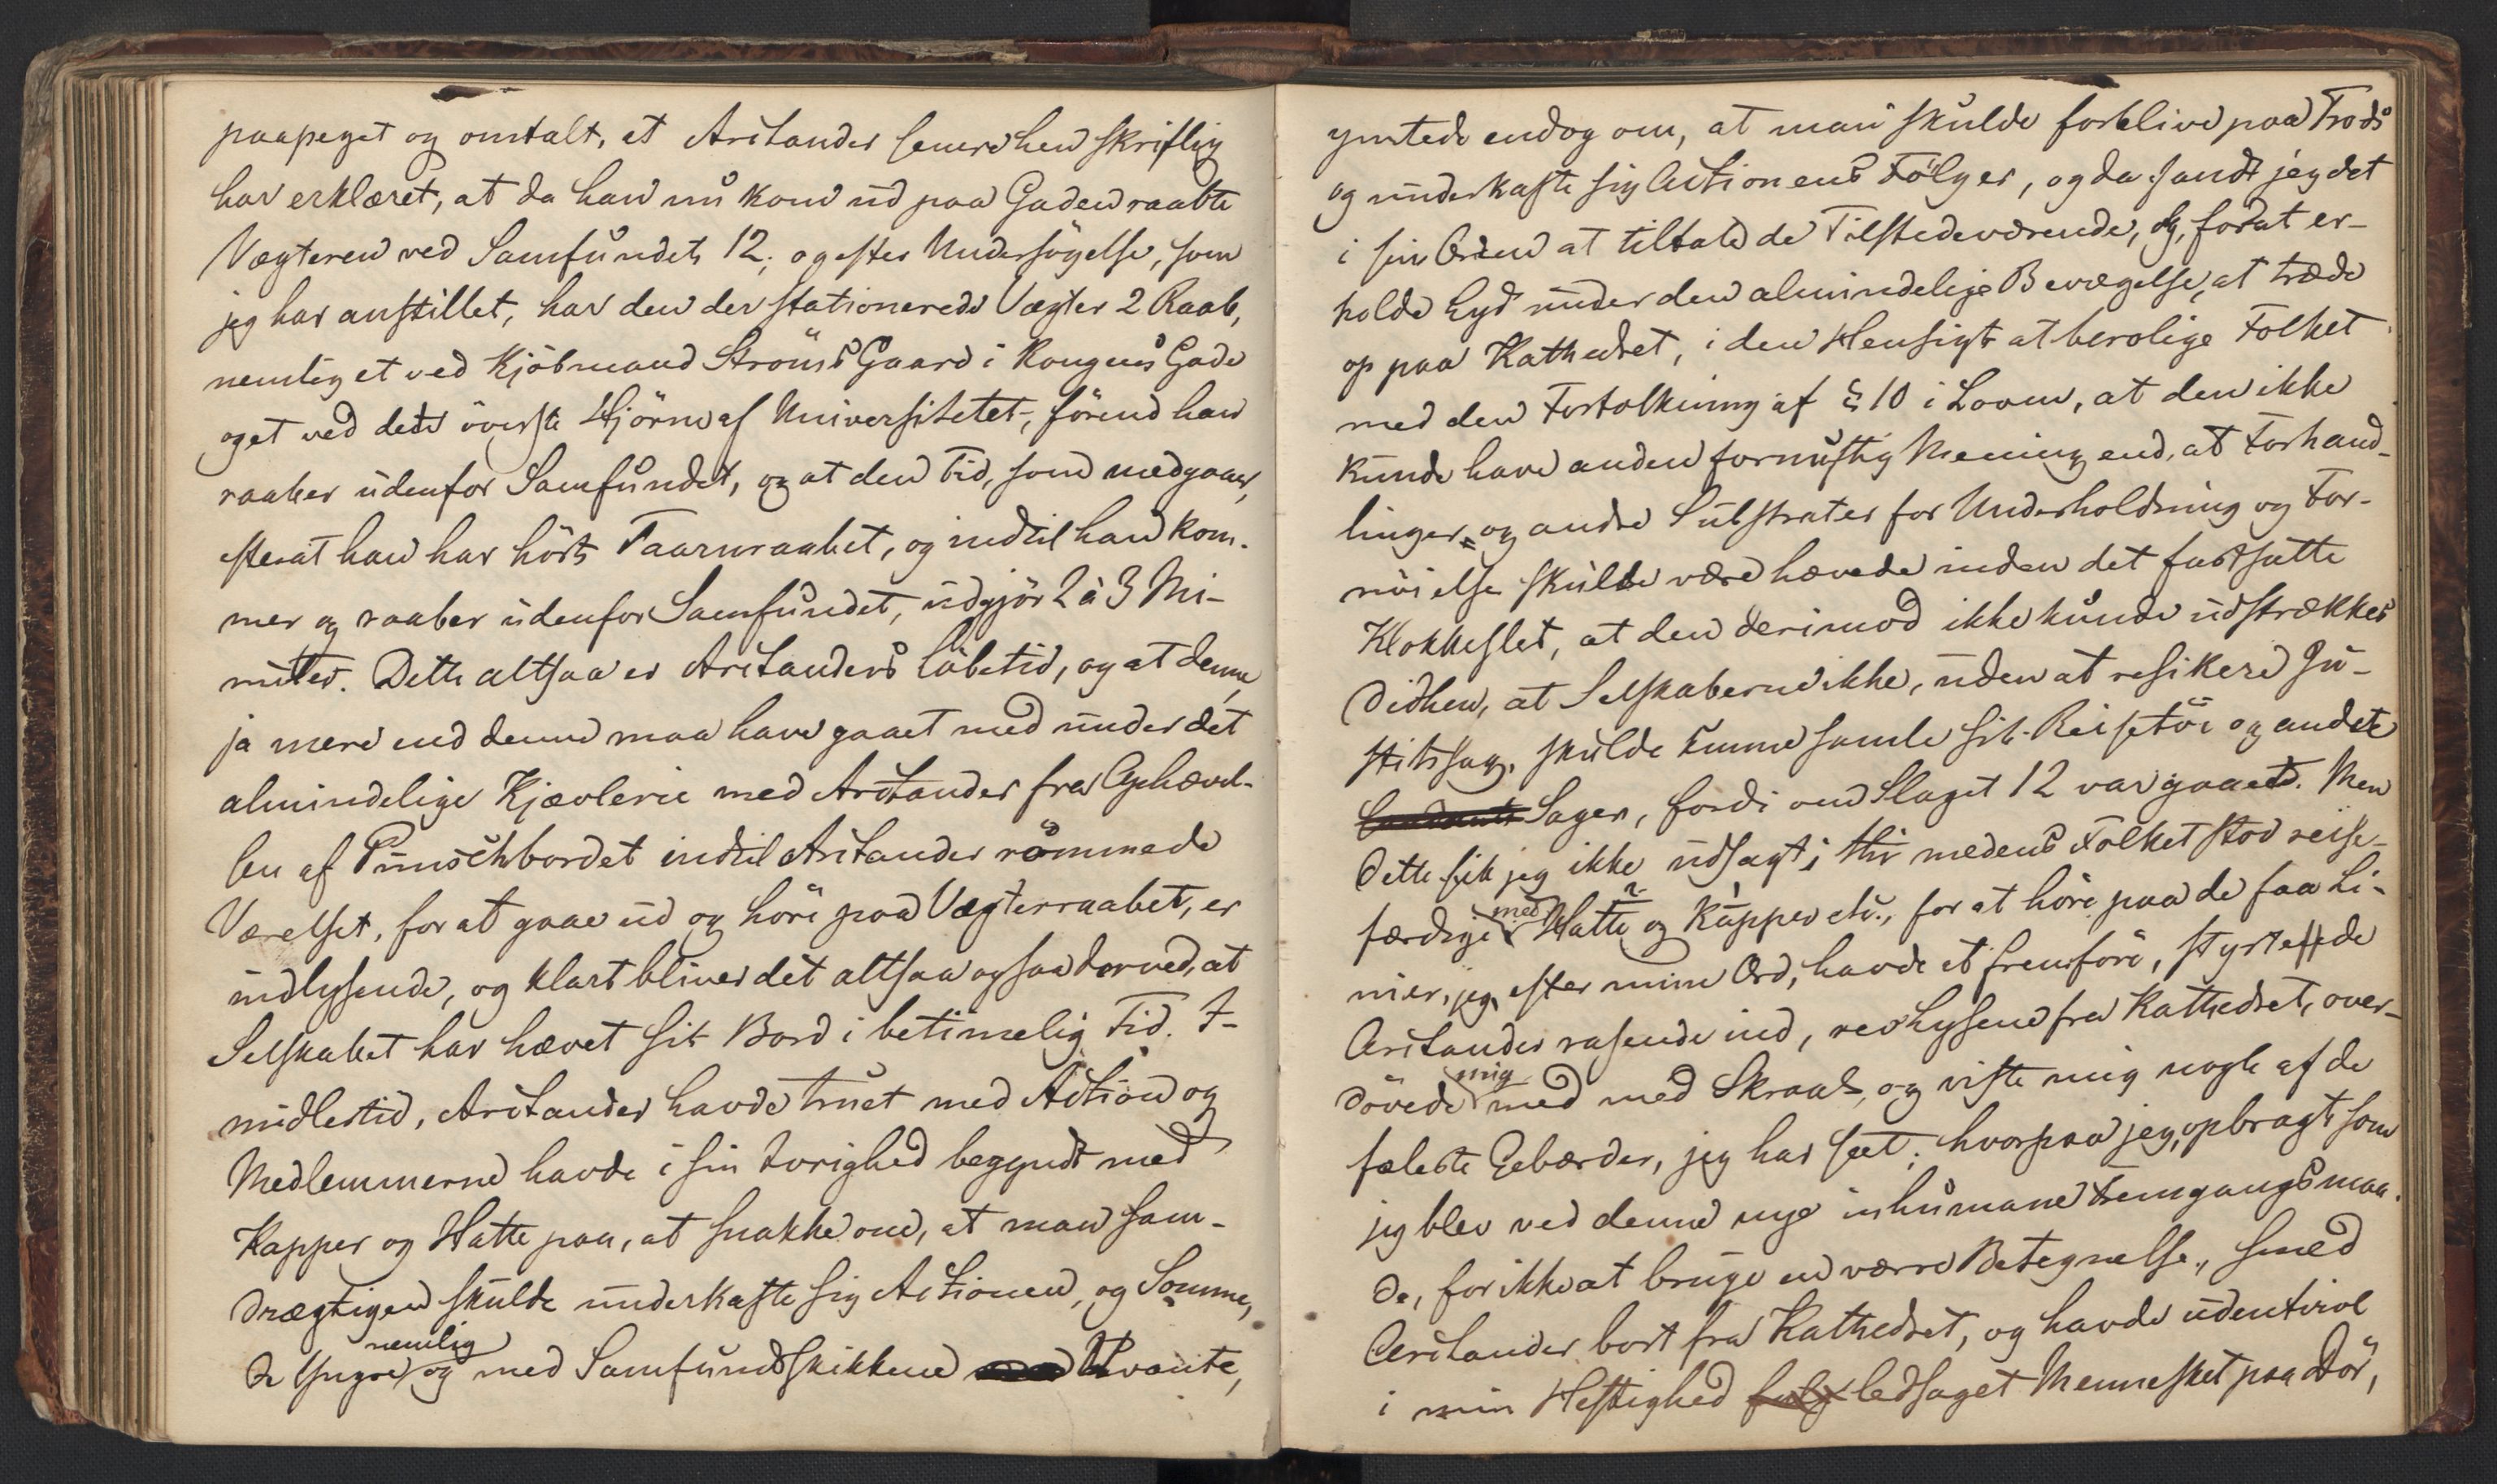 paapeget og omtalt, at Aritander senere hen skriftlig
har erklæret, at da han nu kom ud paa Gaden raabte
Vægteren ved Samfundet 12; og efter Undersögelse, som
jeg har anstillet, har den der stationerede Vægter 2 Raab,
nemlig et ved Kjöbmand Ströms Gaard i Kongens Gade
og et ved det överste Hjörne af Universitetet, förend han
raaber udenfor Samfundet, og at den Tid, som medgaaer,
efterat han har hört Taarnraabet, og indtil han kom-
mer og raaber udenfor Samfundet, udgjör 2 à 3 Mi-
nuter. Dette altsaa er Aritanders Löbetid, og at denne,
ja mere end denne maa have gaaet med under det
almindelige Kjævlerie med Aritander fra Ophævel-
sen af Punschbordet indtil Aritander römmede
Værelset, for at gaae ud og höre paa Vægterraabet, er
indlysende, og klart bliver det altsaa ogsaa derved, at
Selskabet har hævet sit Bord i betimelig Tid. I-
midlertid, Aritander havde truet med Action og
Medlemmerne havde i sin Ivrighed begyndt med
Kapper og Hatte paa, at snakke om, at man sam-
drægtigen skulde underkaste sig Actionen, og Somme,
nemlig
de Yngre og med Samfundsskikkene Uvante,
ymtede endog om, at man skulde forblive paa Trods
og underkaste sig Actionens Fölger, og da fandt jeg det
i sin Orden at tiltale de Tilstedeværende, og, forat er-
holde Lyd under den almindelige Bevægelse, at træde
op paa Kathedret, i den Hensigt at berolige Folket
med den Fortolkning af § 10 i Loven, at den ikke
kunde have anden fornuftig Mening end, at Forhand-
linger og andre Substrater for Underholdning og For-
nöielse skulde være hævede inden det fastsatte
Klokkeslet, at den derimod ikke kunde udstrækkes
didhen, at Selskaberne ikke, uden at risikere Ju-
stitssag, skulde kunne samle sit Reisetöi og andre
Sager, fordi om Slaget 12 var gaaet. Men
Dette fik jeg ikke udsagt; thi medens Folket stod reise-
færdige med Hatte og Kapper etc., for at höre paa de faa Li-
nier, jeg, efter mine Ord, havde at fremföre, styrtede
Aritander rasende ind, rev Lysene fra Kathedret, over-
dövede mig med med Skraal, og viste mig nogle af de
fæleste Gebærder, jeg har seet; hvorpaa jeg, opbragt som
jeg blev ved denne nye inhumane Fremgangsmaa-
de, for ikke at bruge en værre Betegnelse, smed
Aritander bort fra Kathedret, og havde udentvivl
i min Heftighed ledsaget Mennesket paa Dör,